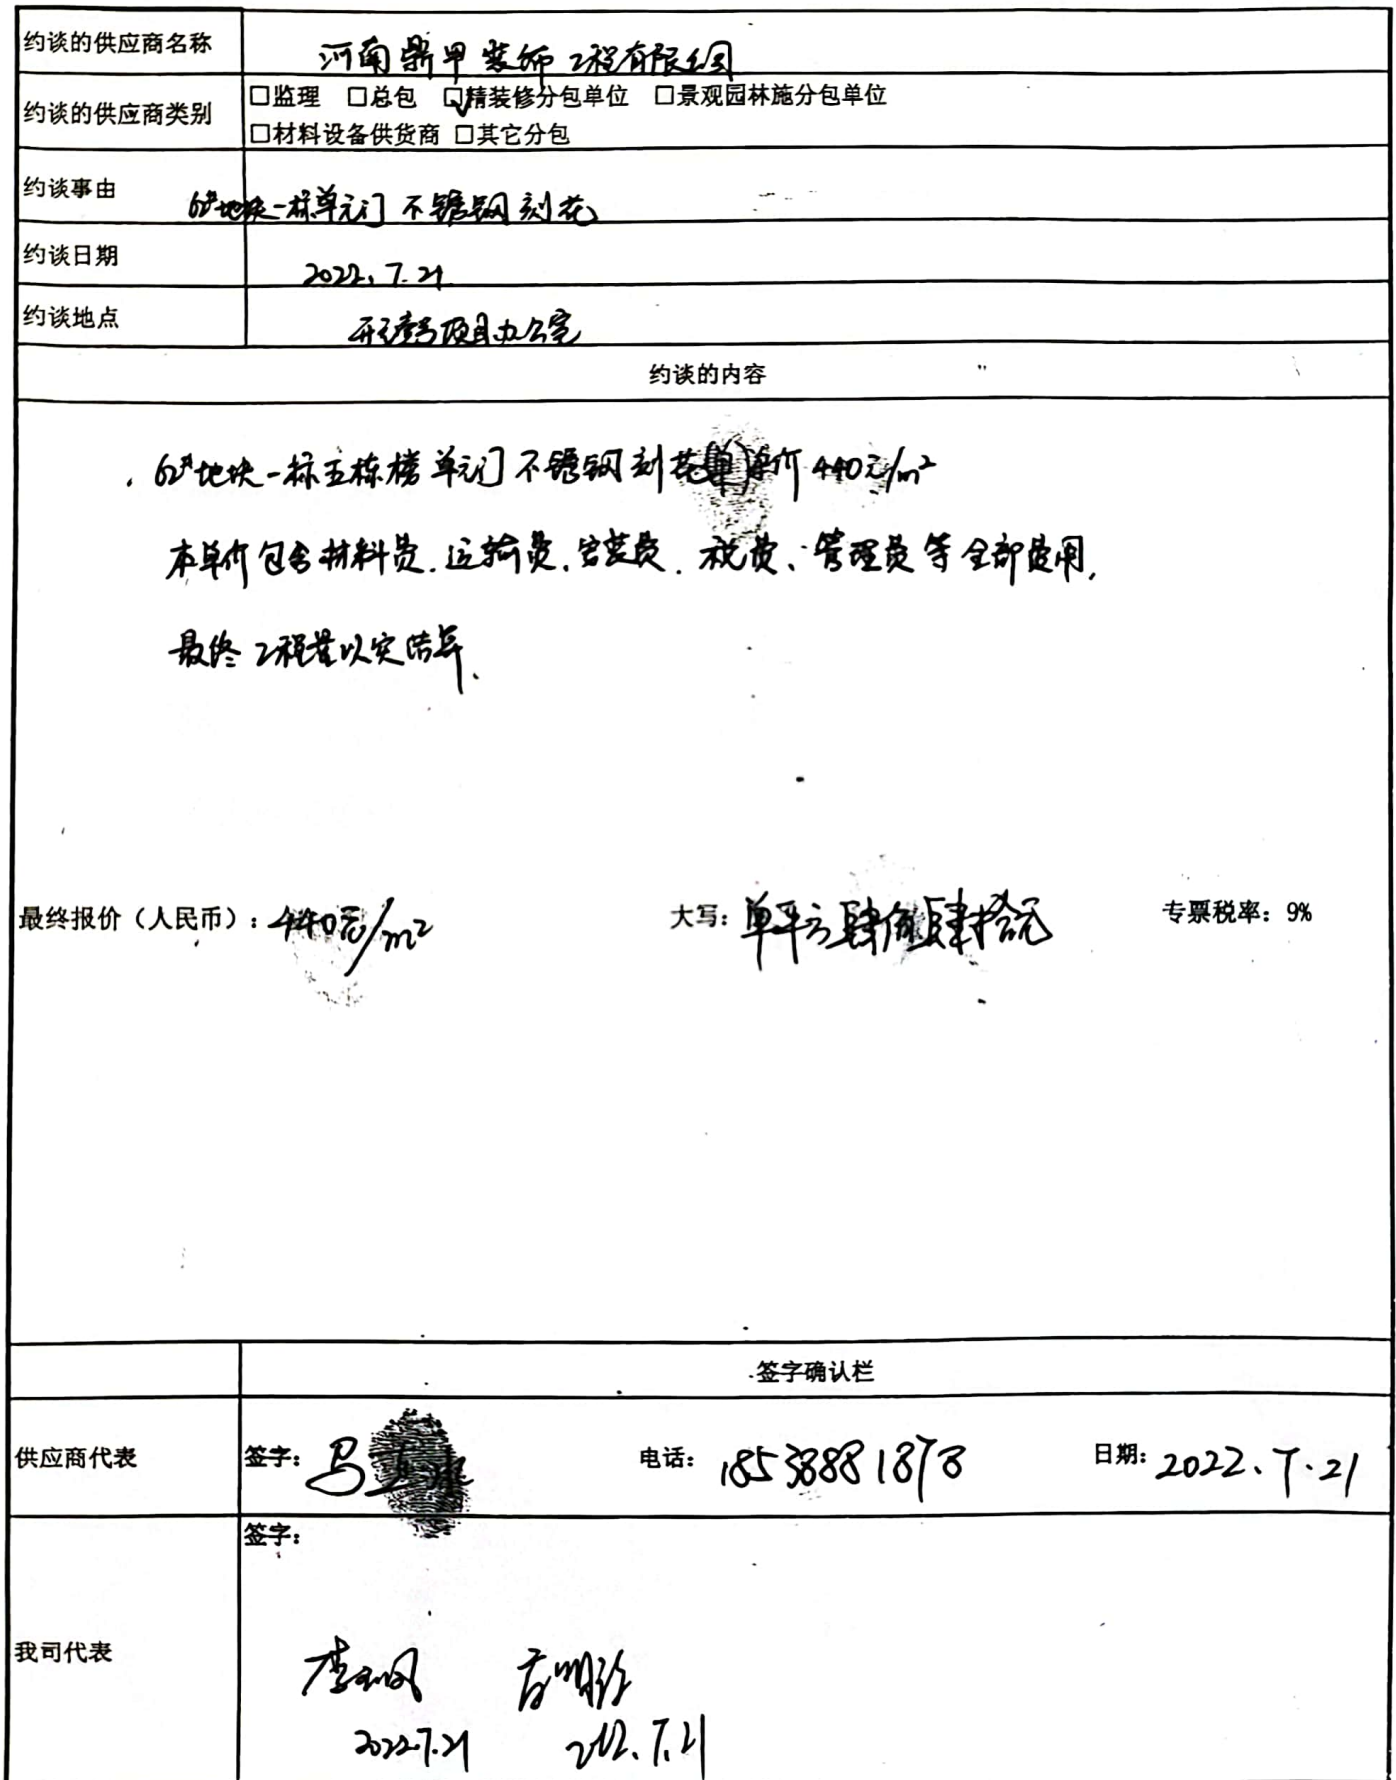 约谈的供应商名称 河南鼎甲装饰工程有限公司
约谈的供应商类别 □监理 □总包 ☑精装修分包单位 □景观园林施分包单位
□材料设备供货商 □其它分包
约谈事由 62#地块一标单元门不锈钢刻花
约谈日期 2022.7.21
约谈地点 项目办公室
约谈的内容
62#地块一标五栋楼单元门不锈钢刻花单价440元/m²
本单价包含材料费.运输费.安装费.税费、管理费等全部费用,
最终工程量以实结算.
最终报价（人民币）：440元/m² 大写：单平方肆佰肆拾元 专票税率：9%
签字确认栏
供应商代表 签字：马 电话：18538881873 日期：2022.7.21
签字：
我司代表
李 明
2022.7.21 2022.7.21